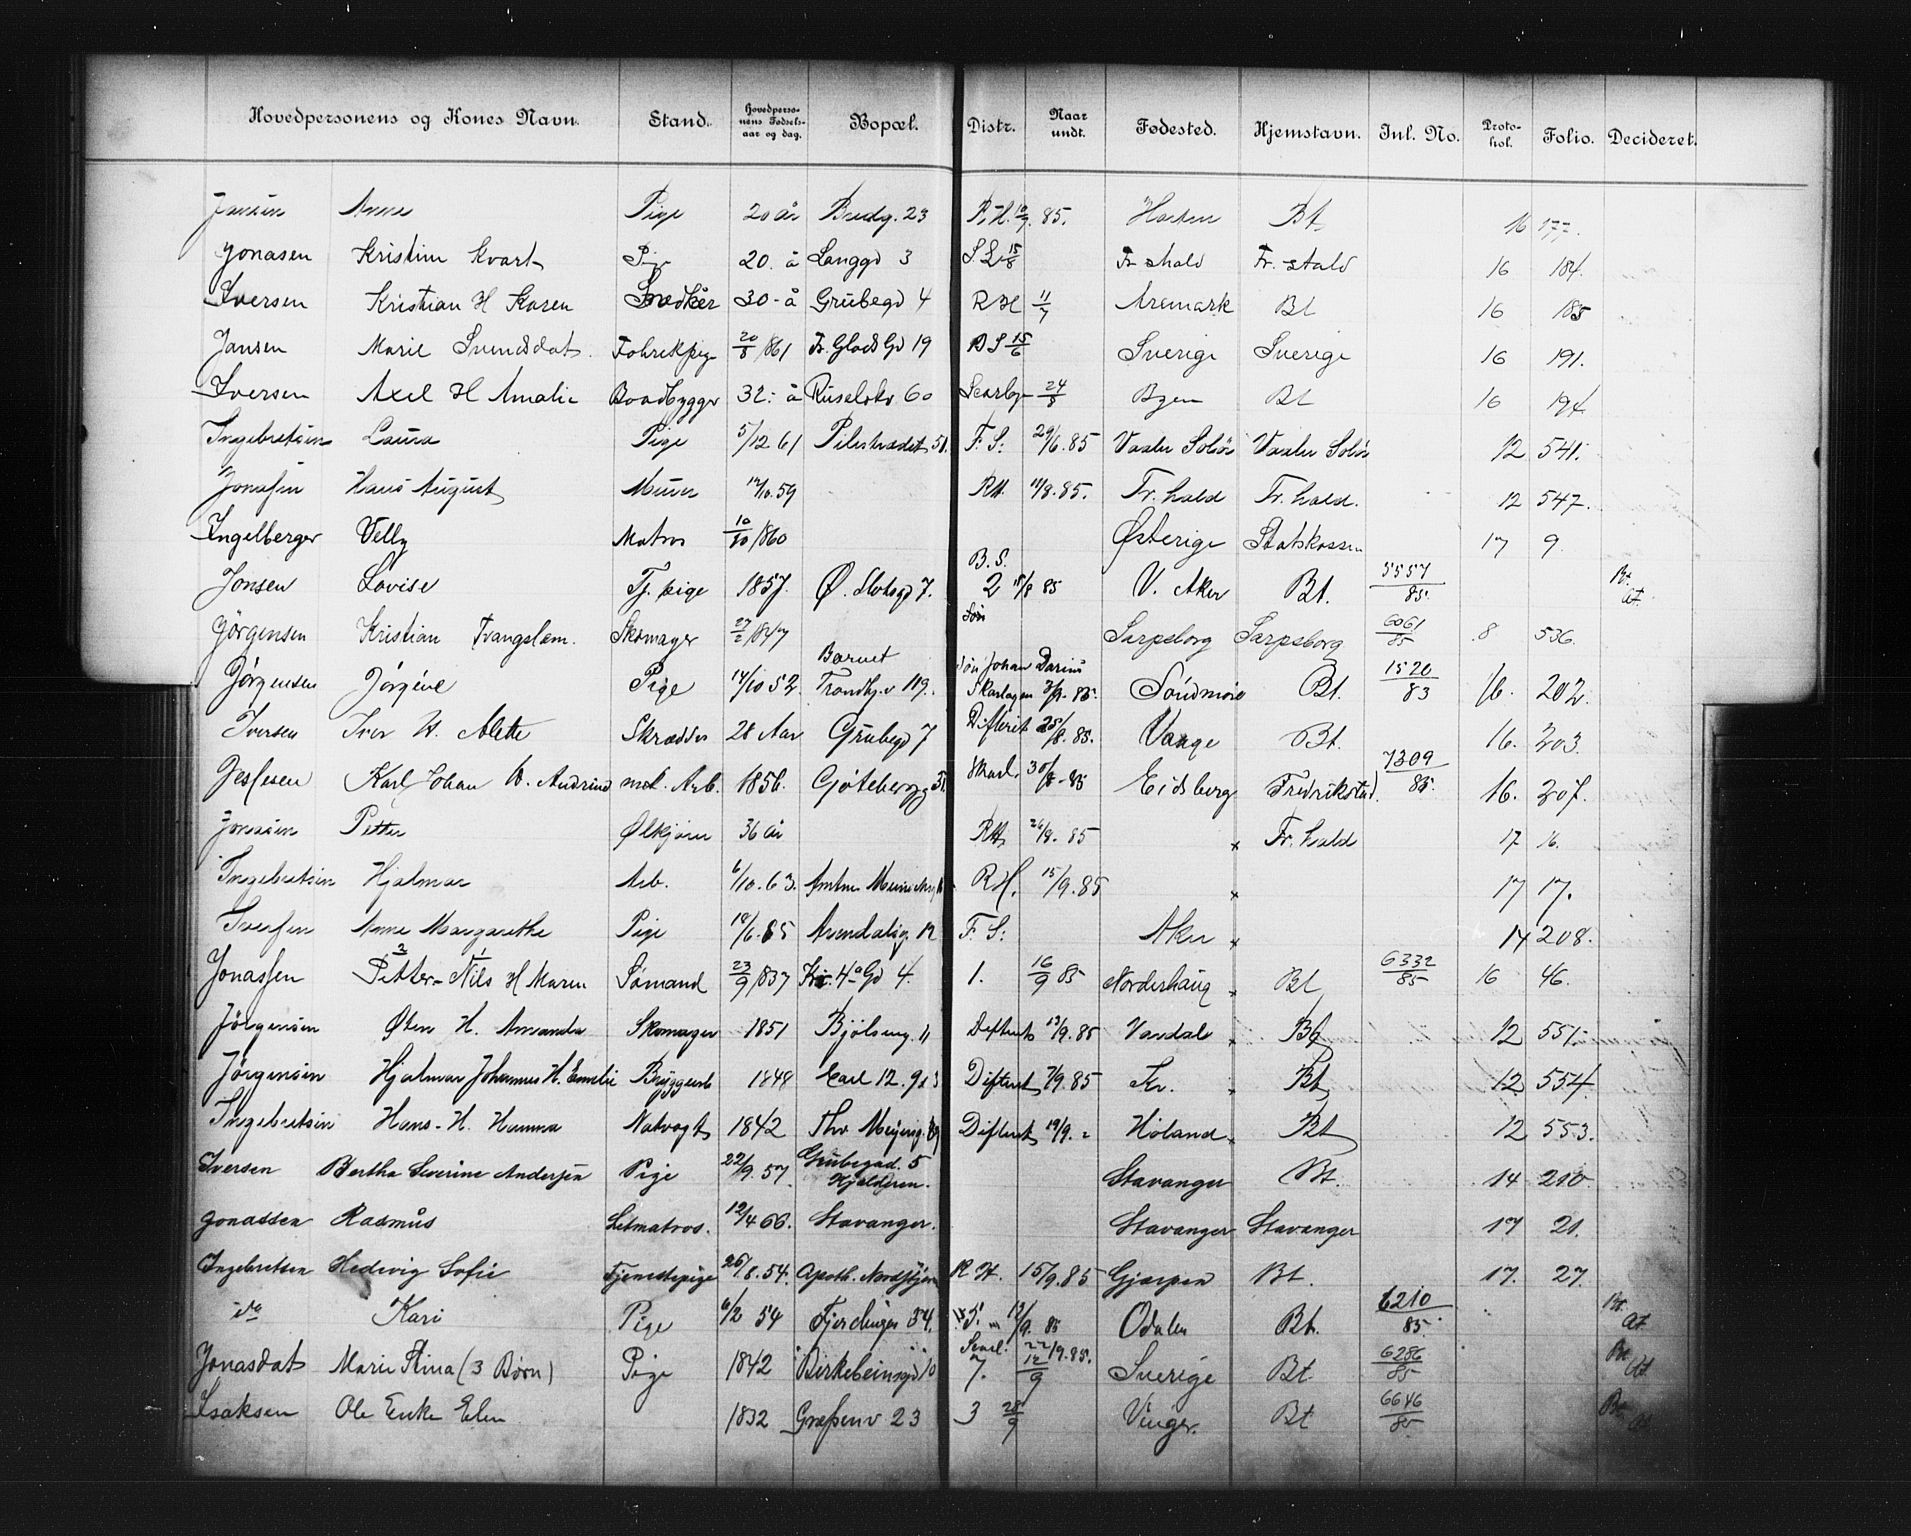 Hovedpersonens og Kones Navn. Stand. Hovedpersonens Fødselsaar og dag. Bopæl. Distr. Naar undt. Fødested. Hjemstavn. Inl. No. Protokol. Folio. Decideret.
Jansen Anna Pige 20 år Bredg. 23 R.H. 10/9. 85. Horten Bt 16 177.
Jonasen Kristine Kvart Pige 20. å Langgd 3 S.L. 15/8 Fr. shald Fr. shald 16 184.
Iversen Kristian H Karen Snedker 30 - å Grubegd 4 R H 11/7 Aremark Bt 16 185
Jansen Marie Svendsdat. Fabrikpige 20/8 /861 Fr. Glads Gd 19 B S 15/6 Sverige Sverige 16 191.
Iversen Axel H Amalie Baadbygger 32 - å Ruseløkv 60 Scarlag 24/8 Byen Bt 16 194
Ingebretsen Laura Pige 5/12 61 Pilestrædet 51. F. S: 29/6. 85 Vaaler Solør Vaaler Solør 12 541.
Jonasen Hans August Murer 12/10. 59 RH. 11/8. 85. Fr. hald Fr. hald. 12 547.
Ingelberger Velly Matros 10/10 /860 Østerige Statskassen 17 9.
Jonsen Lovise Tj. pige 1857. Ø. Slotsgd 7. B. S. 2 18/8 85 V. Aker Bt. 5557/85. Bt. At.
Jörgensen Kristian Trangslem. Skomager 27/2 /847 Sön Sarpsborg Sarpsborg 6061/85 8 536.
Jørgensen Jörgine Pige 14/10 52. Barnet Trondhj. v 119. sön Johan Darius Skarlagen 3/9. 85. Söndmøre Bt. 1520/83 16. 202.
Iversen Iver H. Alette Skrædder 28 Aar Grubegd 7 Difterit 25/8. 85. Vaage Bt. 16. 203.
Jessesen Karl Johan H. Andrine mek. Arb. 1856. Gøtebergg Skarl. 30/8 - 85 Eidsberg Fredrikstad. 7309/85. 16. 207.
Jonasen Petter Ølkjører 36 år RH 26/8. 85 x Fr. hald 17 16.
Ingebretsen Hjalmar Arb. 6/10. 63. Amtm R.H. 15/9. 85 x 17 17.
Iversen Anne Margarethe Pige 18/6. 65 Arendalsg. 12 F. S: Aker x 14 208.
Jonassen Petter 2 - Nils 1 H Maren Sømand 23/9 /837 Kr. 4 Gd 4. 1. 16/9 85 Norderhaug Bt 6332/85 16 46.
Jörgensen Øten H. Amanda Skomager 1851 Bjölseng. 11 Difterit 13/9. 85 Vardal Bt 12 551.
Jörgensen Hjalmar Johannes H. Emelie Bryggearb 1848 Carl 12. gd 3 Difterit 7/9. 85 Kr. Bt 12 554.
Ingebretsen Hans - H. Hanna Natvagt 1842 Thv Meyersg. Difterit 19/9. - Høland Bt 12 553.
Iversen Bertha Severine Andersen Pige 22/9. 57. Grubegad. 5 Kjælderen. Stavanger Bt. 14 210.
Jonassen Rasmus Letmatros. 12/4 66. Stavanger. Stavanger Stavanger 17 21.
Ingebretsen Hedevig Sofie Tjenestepige 26/8. 54. Apoth. R. H. 15/9. 85 Gjerpen Bt. 17. 27.
do Kari Pige 6/2 54 Fjerdingen 34. S. 13/9. 85 Odalen Bt. 6210/85. Bt. At.
Jonasdat Marie Stina (3 Børn) Pige 1842 Birkebeinergd 10 Scarl. 22/9. 85. 7. 12/9 Sverige Bt. 6286/85 Bt At.
Isaksen Ole Enke Elen 1832 Grøssenv 23 3 28/9 Vinger. Bt 6646/85. Bt At